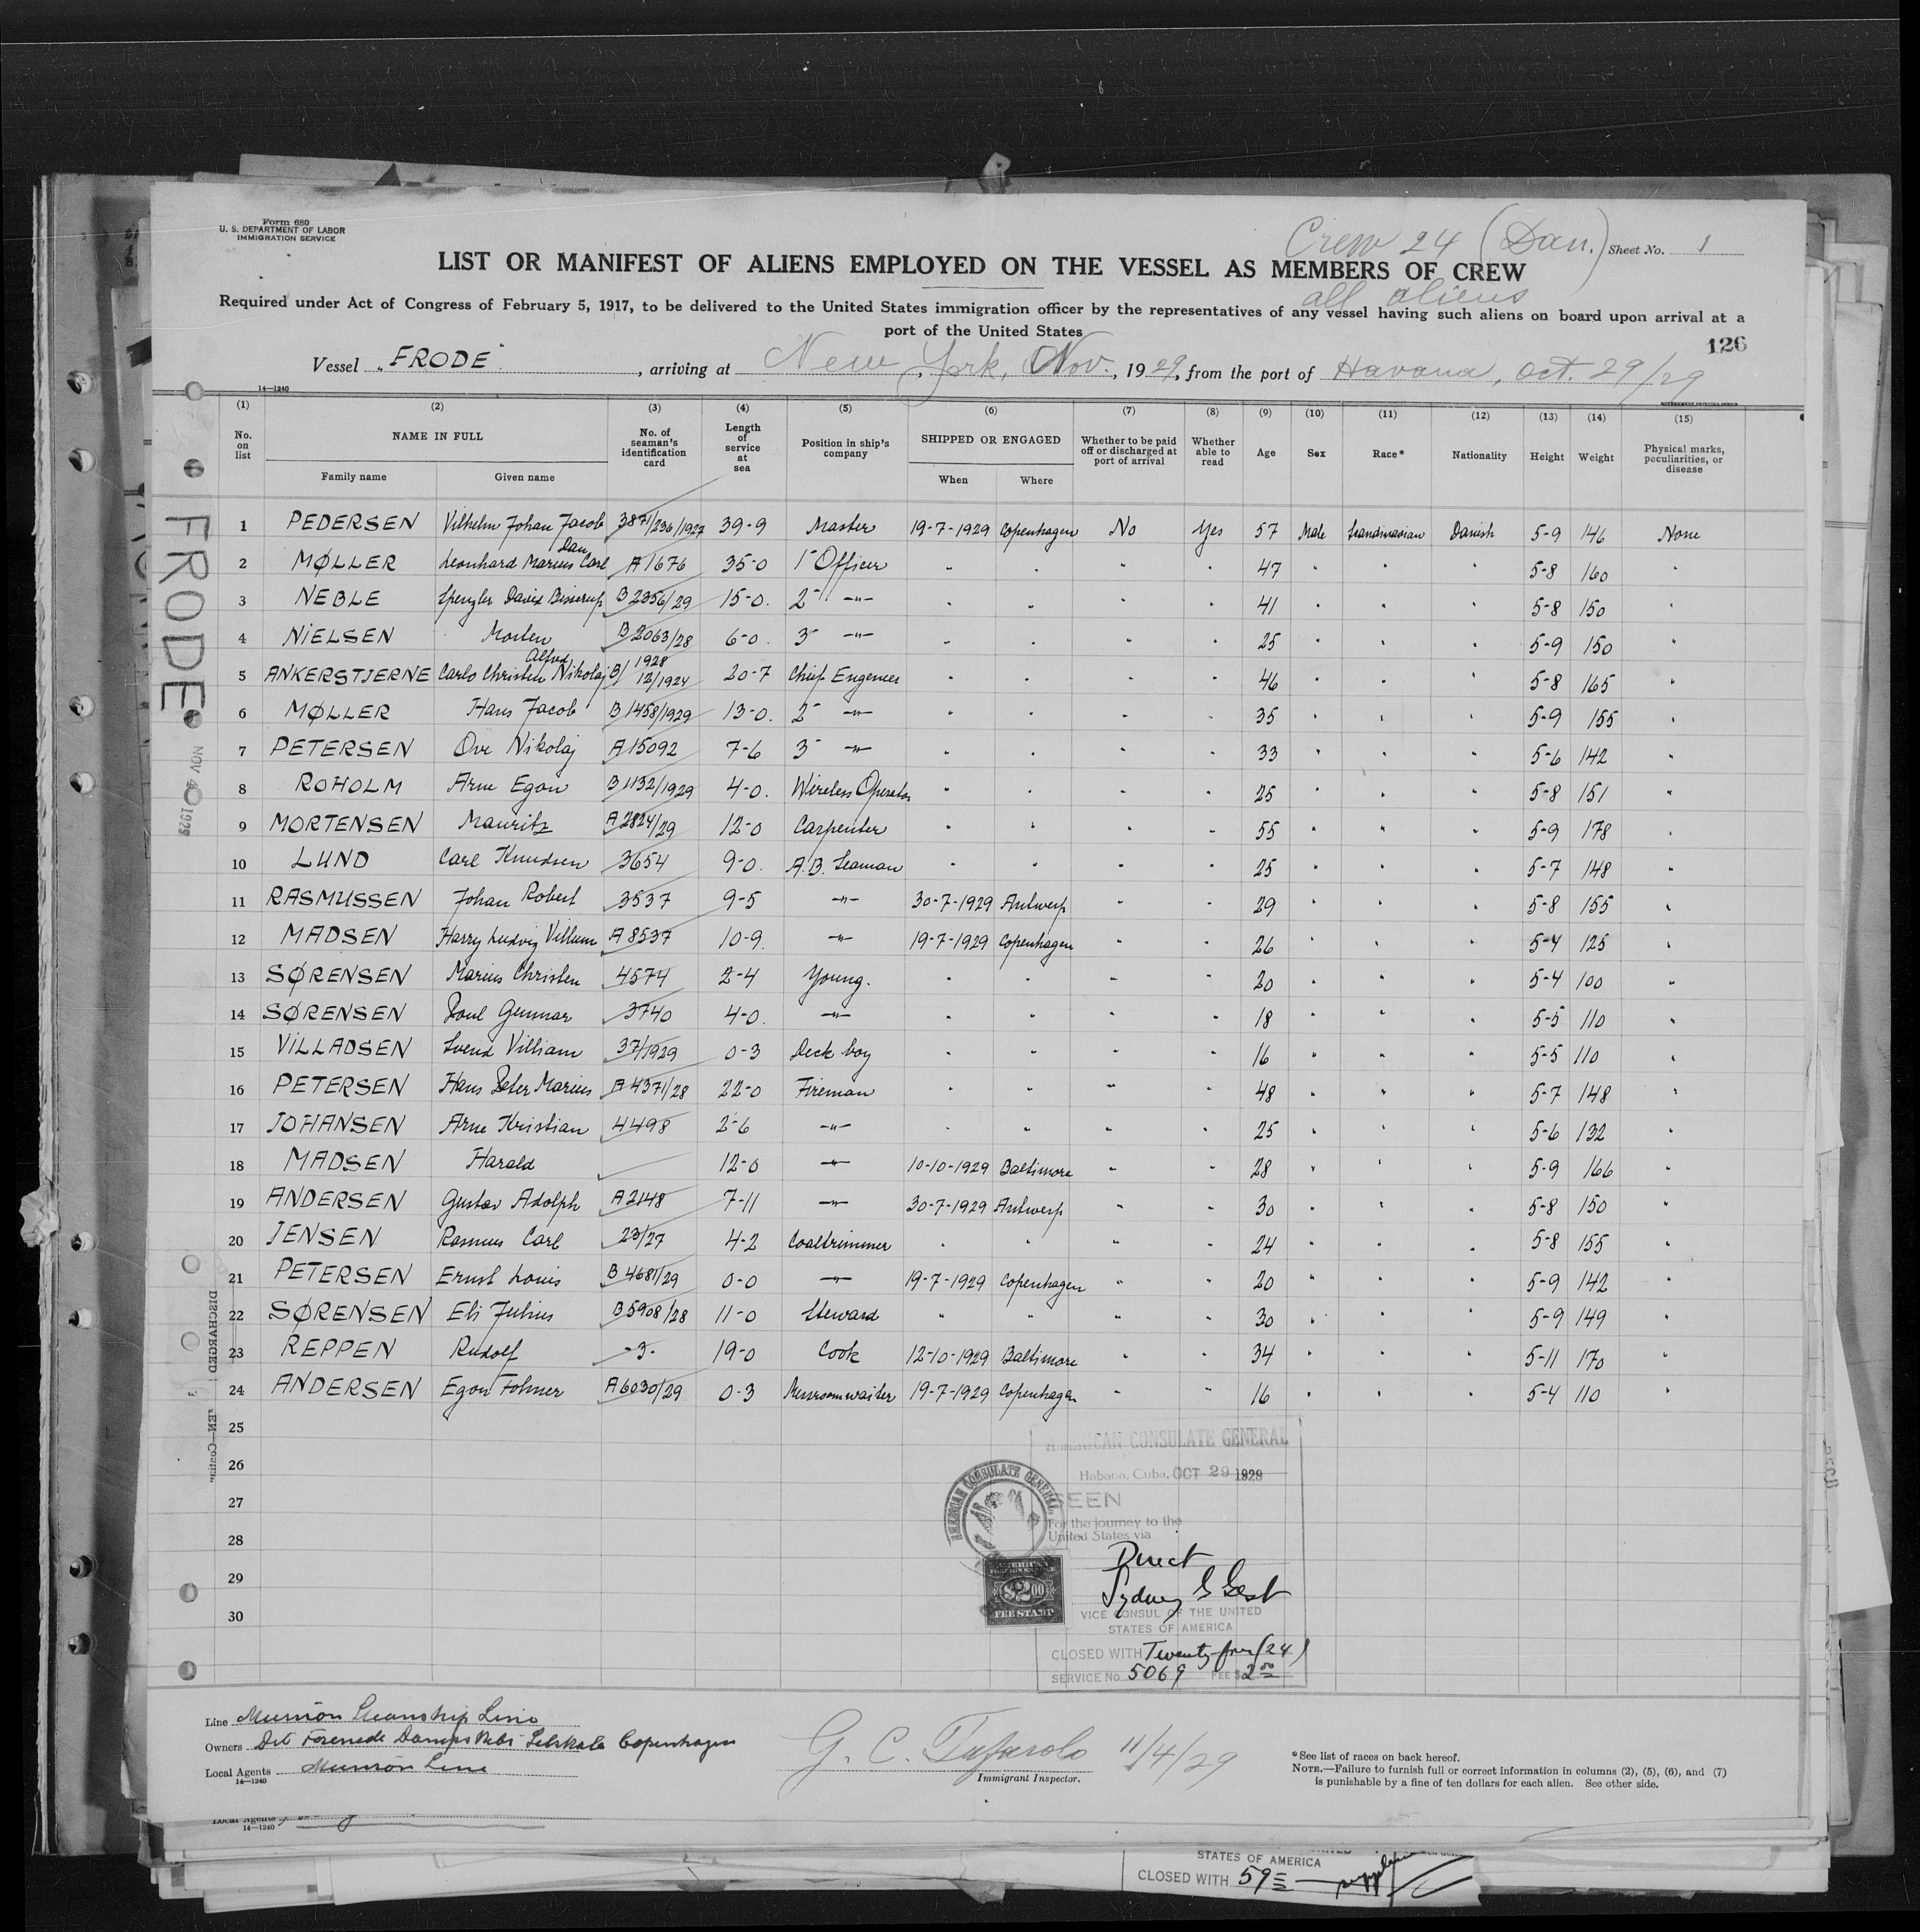 Form 680
U. S. DEPARTMENT OF LABOR
IMMIGRATION SERVICE
Crew 24 (Dan.)
Sheet No. 1
LIST OR MANIFEST OF ALIENS EMPLOYED ON THE VESSEL AS MEMBERS OF CREW
all aliens
Required under Act of Congress of February 5, 1917, to be delivered to the United States immigration officer by the representatives of any vessel having such aliens on board upon arrival at a
port of the United States
126
Vessel „FRODE", arriving at New York, Nov., 1929, from the port of Havana, Oct. 29/29
14—1240
GOVERNMENT PRINTING OFFICE
(1) (2) (3) (4) (5) (6) (7) (8) (9) (10) (11) (12) (13) (14) (15)
No. on list NAME IN FULL Family name Given name No. of seaman's identification card Length of service at sea Position in ship's company SHIPPED OR ENGAGED When Where Whether to be paid off or discharged at port of arrival Whether able to read Age Sex Race* Nationality Height Weight Physical marks, peculiarities, or disease
1 PEDERSEN Vilhelm Johan Jacob 3871/236/1927 39-9 Master 19-7-1929 Copenhagen No Yes 57 Male Scandinavian Danish 5-9 146 None
2 MØLLER Leonhard Marius Carl Dan A 1676 35-0 1- Officer " " " " 47 " " " 5-8 160 "
3 NEBLE Spengler David Bisserup B 2356/29 15-0. 2- -"- " " " " 41 " " " 5-8 150 "
4 NIELSEN Morten B 2063/28 6-0. 3- -"- " " " " 25 " " " 5-9 150 "
5 ANKERSTJERNE Carlo Christen Alfred Nikolaj B/ 1928 12/1924 20-7 Chief Engeneer " " " " 46 " " " 5-8 165 "
6 MØLLER Hans Jacob B 1458/1929 13-0. 2- -"- " " " " 35 " " " 5-9 155 "
7 PETERSEN Ove Nikolaj A 15092 7-6 3- -"- " " " " 33 " " " 5-6 142 "
8 ROHOLM Arne Egon B 1132/1929 4-0. Wireless Operator " " " " 25 " " " 5-8 151 "
9 MORTENSEN Mauritz A 2824/29 12-0 Carpenter " " " " 55 " " " 5-9 178 "
10 LUND Carl Knudsen 3654 9-0. A.B. Seaman " " " " 25 " " " 5-7 148 "
11 RASMUSSEN Johan Robert 3537 9-5 -"- 30-7-1929 Antwerp " " 29 " " " 5-8 155 "
12 MADSEN Harry Ludvig Villum A 8537 10-9. -"- 19-7-1929 Copenhagen " " 26 " " " 5-4 125 "
13 SØRENSEN Marius Christen 4574 2-4 Young. " " " " 20 " " " 5-4 100 "
14 SØRENSEN Poul Gunnar 3740 4-0. -"- " " " " 18 " " " 5-5 110 "
15 VILLADSEN Svend Villiam 37/1929 0-3 Deck boy " " " " 16 " " " 5-5 110 "
16 PETERSEN Hans Peter Marius A 4371/28 22-0 Fireman " " " " 48 " " " 5-7 148 "
17 JOHANSEN Arne Kristian 4498 2-6 -"- " " " " 25 " " " 5-6 132 "
18 MADSEN Harald 12-0 -"- 10-10-1929 Baltimore " " 28 " " " 5-9 166 "
19 ANDERSEN Gustav Adolph A 2148 7-11 -"- 30-7-1929 Antwerp " " 30 " " " 5-8 150 "
20 JENSEN Rasmus Carl 23/27 4-2 Coaltrimmer " " " " 24 " " " 5-8 155 "
21 PETERSEN Ernst Louis B 4681/29 0-0 -"- 19-7-1929 Copenhagen " " 20 " " " 5-9 142 "
22 SØRENSEN Eli Julius B 5908/28 11-0 Steward " " " " 30 " " " 5-9 149 "
23 REPPEN Rudolf -3- 19-0 Cook 12-10-1929 Baltimore " " 34 " " " 5-11 170 "
24 ANDERSEN Egon Folmer A 6030/29 0-3 Messroomwaiter 19-7-1929 Copenhagen " " 16 " " " 5-4 110 "
25
26
27
28
29
30
FRODE
NOV 4 1929
DISCHARGED
AMERICAN CONSULATE GENERAL
Habana, Cuba, OCT 29 1929
SEEN
For the journey to the
United States via
Direct
Sydney G Gest
VICE CONSUL OF THE UNITED
STATES OF AMERICA
CLOSED WITH Twenty-four (24)
SERVICE No. 5069 FEE $2.00
AMERICAN CONSULATE GENERAL
AMERICAN
FOREIGN SERVICE
$2.00
FEE STAMP
Line Munson Steamship Line
Owners Det Forenede Dampskibs Selskab Copenhagen
Local Agents Munson Line
14—1240
G. C. Tufarolo 11/4/29
Immigrant Inspector.
*See list of races on back hereof.
NOTE.—Failure to furnish full or correct information in columns (2), (5), (6), and (7)
is punishable by a fine of ten dollars for each alien. See other side.
Local Agents
14—1240
STATES OF AMERICA
CLOSED WITH 59